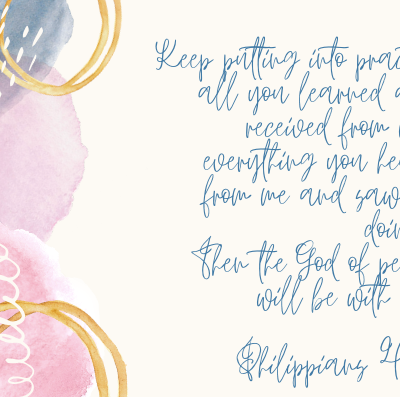 Keep putting into prac
all you learned a
received from
everything you he
from me and saw
doin
Then the God of pe
will be with
Philippians 4